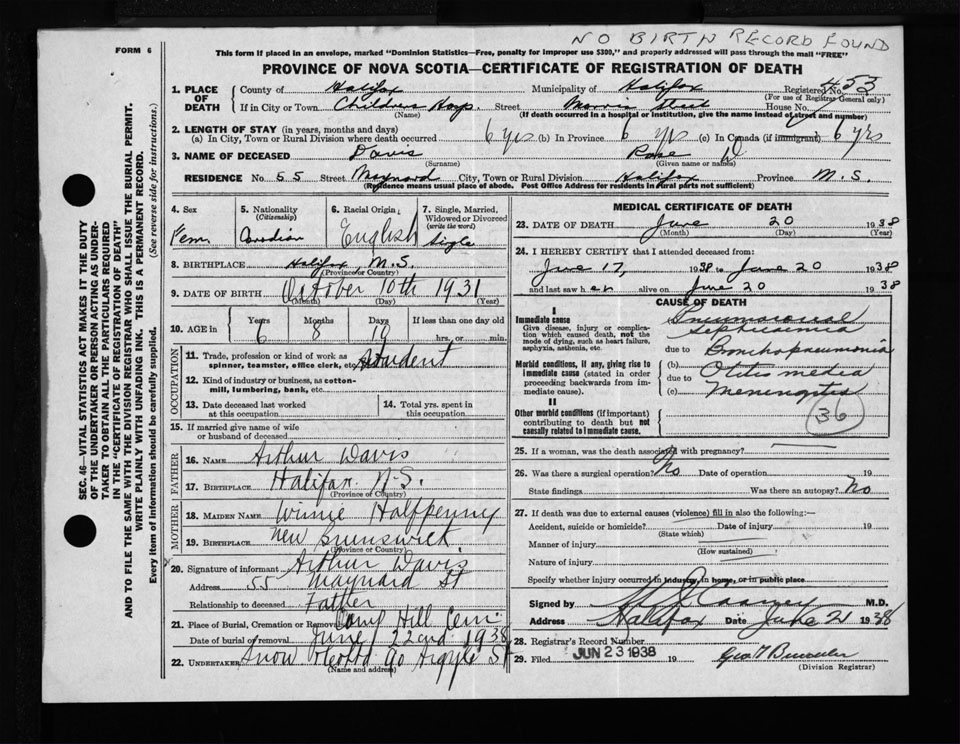 NO BIRTH RECORD FOUND
FORM 6
This form if placed in an envelope, marked "Dominion Statistics—Free, penalty for improper use $300," and properly addressed will pass through the mail "FREE"
PROVINCE OF NOVA SCOTIA—CERTIFICATE OF REGISTRATION OF DEATH
SEC. 46—VITAL STATISTICS ACT MAKES IT THE DUTY
OF THE UNDERTAKER OR PERSON ACTING AS UNDER-
TAKER TO OBTAIN ALL THE PARTICULARS REQUIRED
IN THE "CERTIFICATE OF REGISTRATION OF DEATH"
AND TO FILE THE SAME WITH THE DIVISION REGISTRAR WHO SHALL ISSUE THE BURIAL PERMIT.
WRITE PLAINLY WITH UNFADING INK. THIS IS A PERMANENT RECORD.
Every item of information should be carefully supplied. (See reverse side for instructions.)
1. PLACE OF DEATH County of Halifax Municipality of Halifax Registered No. 453
(For use of Registrar General only)
If in City or Town Childrens Hosp. Street Morris Street House No.
(Name) (If death occurred in a hospital or institution, give the name instead of street and number)
2. LENGTH OF STAY (in years, months and days)
(a) In City, Town or Rural Division where death occurred 6 yrs (b) In Province 6 yrs (c) In Canada (if immigrant) 6 yrs
3. NAME OF DECEASED Davis Rose W
(Surname) (Given name or names)
RESIDENCE No. 55 Street Maynard City, Town or Rural Division Halifax Province N.S.
(Residence means usual place of abode. Post Office Address for residents in rural parts not sufficient)
4. Sex 5. Nationality (Citizenship) 6. Racial Origin 7. Single, Married, Widowed or Divorced (write the word)
Fem Canadian English Sigle
8. BIRTHPLACE Halifax N.S.
(Province or Country)
9. DATE OF BIRTH October 10th 1931
(Month) (Day) (Year)
10. AGE in Years Months Days If less than one day old
6 8 10 hrs. or min.
OCCUPATION
11. Trade, profession or kind of work as spinner, teamster, office clerk, etc. Student
12. Kind of industry or business, as cotton-mill, lumbering, bank, etc.
13. Date deceased last worked at this occupation 14. Total yrs. spent in this occupation
15. If married give name of wife or husband of deceased
FATHER
16. NAME Arthur Davis
17. BIRTHPLACE Halifax N.S.
(Province or Country)
MOTHER
18. MAIDEN NAME Winnie Halfpenny
19. BIRTHPLACE New Brunswick
(Province or Country)
20. Signature of informant Arthur Davis
Address 55 Maynard St
Relationship to deceased Father
21. Place of Burial, Cremation or Removal Camp Hill Cem
Date of burial or removal June 22nd 1938
22. UNDERTAKER Snow 90 Argyle St
(Name and address)
MEDICAL CERTIFICATE OF DEATH
23. DATE OF DEATH June 20 1938
(Month) (Day) (Year)
24. I HEREBY CERTIFY that I attended deceased from:
June 17, 1938 to June 20 1938
and last saw h er alive on June 20 1938
CAUSE OF DEATH
I
Immediate cause Pneumococcal Septicaemia
Give disease, injury or complication which caused death, not the mode of dying, such as heart failure, asphyxia, asthenia, etc.
due to Bronchopneumonia
Morbid conditions, if any, giving rise to immediate cause (stated in order proceeding backwards from immediate cause).
(b) Otitis media
due to
(c) Meningitis
II
Other morbid conditions (if important) contributing to death but not causally related to immediate cause.
36
25. If a woman, was the death associated with pregnancy?
26. Was there a surgical operation? No Date of operation 19
State findings Was there an autopsy? No
27. If death was due to external causes (violence) fill in also the following:—
Accident, suicide or homicide? Date of injury 19
(State which)
Manner of injury
(How sustained)
Nature of injury
Specify whether injury occurred in industry, in home, or in public place
Signed by M.D.
Address Halifax Date June 21 1938
28. Registrar's Record Number
29. Filed JUN 23 1938 19 Geo
(Division Registrar)